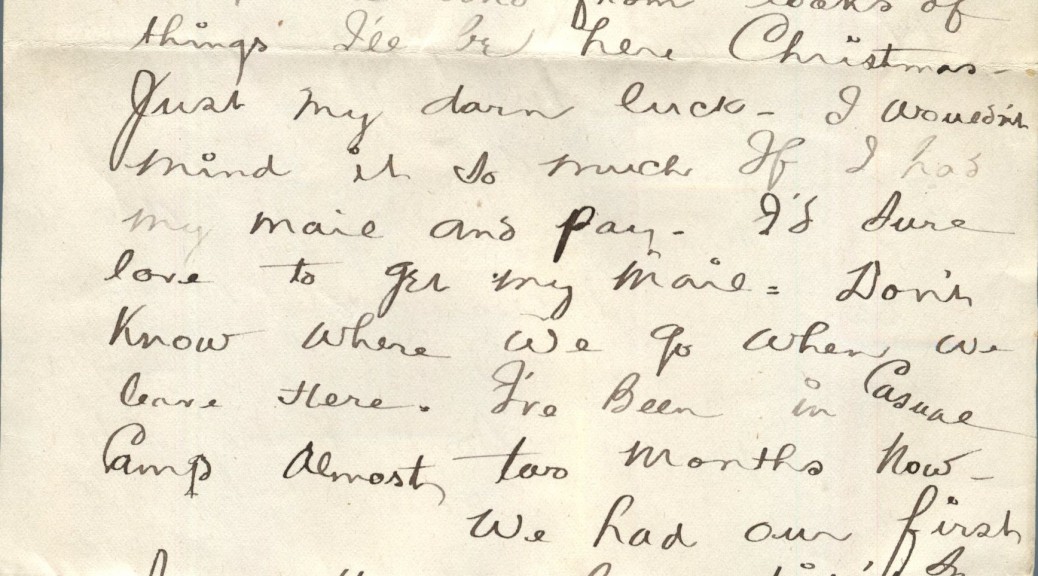 from looks of
things I'll be here Christmas-
Just my darn luck- I wouldn't
mind it so much If I had
my mail and pay- I'd sure
love to get my mail= Don't
Know where we go when we
leave Here. I've Been in Casual
Camp Almost two Months Now-
We had our first